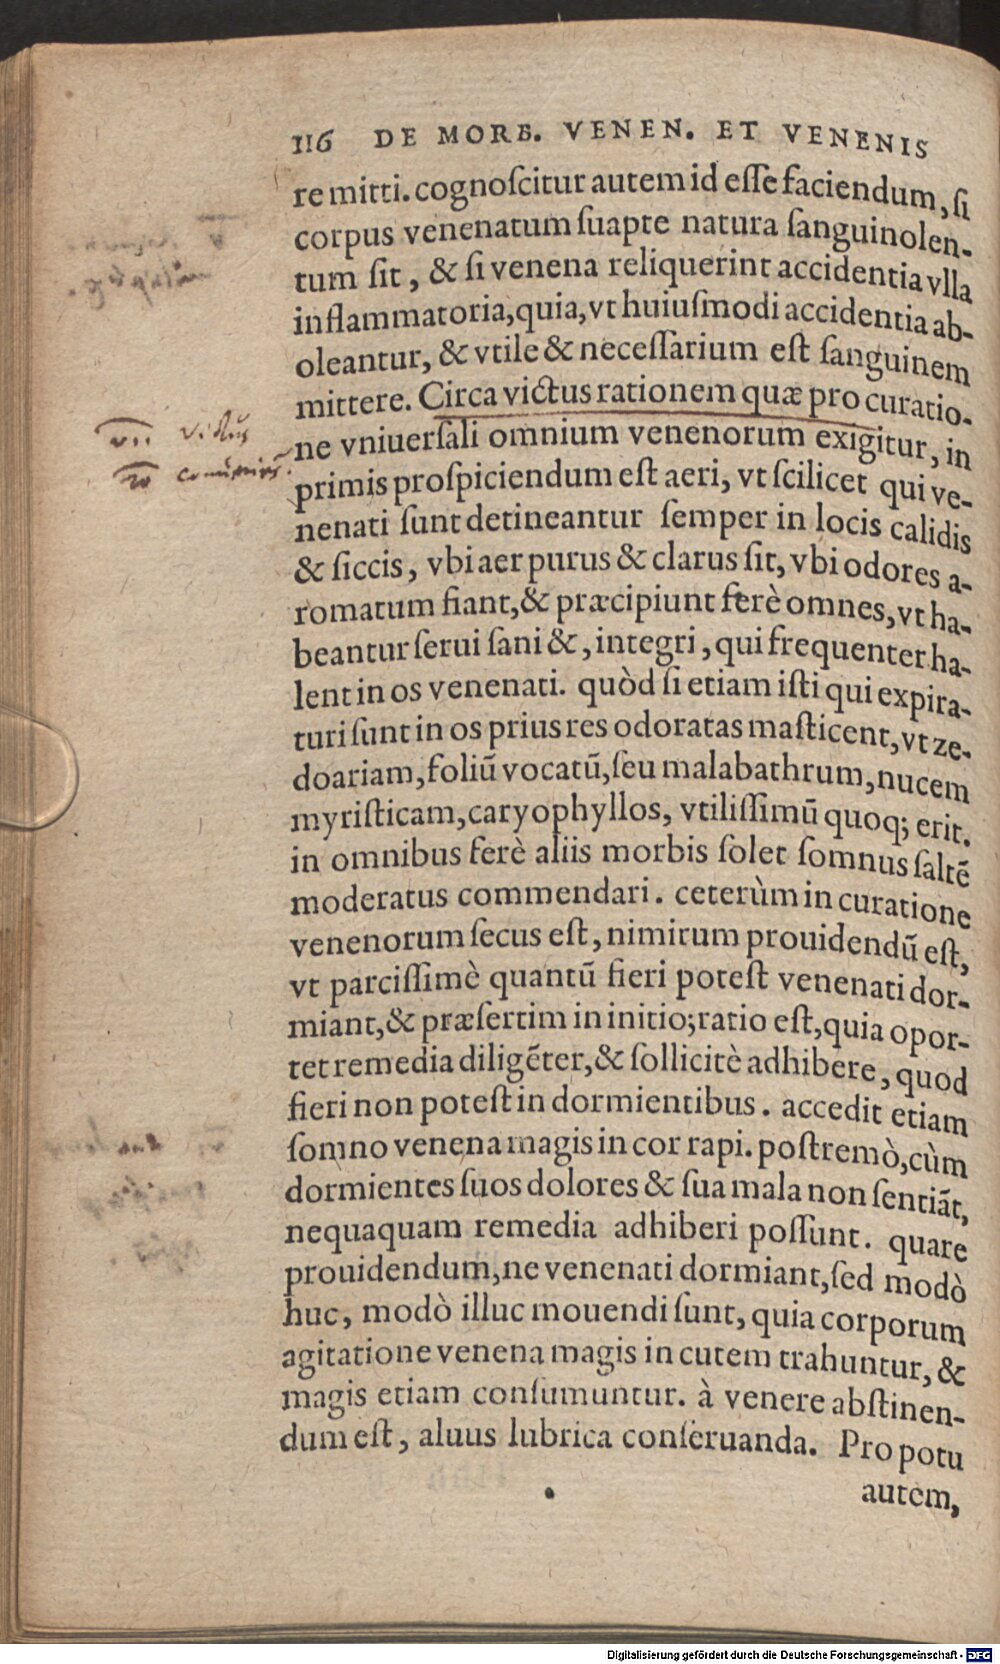 116 DE MORB. VENEN. ET VENENIS
re mitti. cognoſcitur autem id eſſe faciendum, ſi
corpus venenatum ſuapte natura ſanguinolen-
tum ſit, & ſi venena reliquerint accidentia vlla
inflammatoria, quia, vt huiuſmodi accidentia ab-
oleantur, & vtile & neceſſarium eſt ſanguinem
mittere. Circa victus rationem quæ pro curatio-
ne vniuerſali omnium venenorum exigitur, in
primis proſpiciendum eſt aeri, vt ſcilicet qui ve-
nenati ſunt detineantur ſemper in locis calidis
& ſiccis, vbi aer purus & clarus ſit, vbi odores a-
romatum fiant, & præcipiunt ferè omnes, vt ha-
beantur ſerui ſani &, integri, qui frequenter ha-
lent in os venenati. quòd ſi etiam iſti qui expira-
turi ſunt in os prius res odoratas maſticent, vt ze-
doariam, foliū vocatū, ſeu malabathrum, nucem
myriſticam, caryophyllos, vtiliſſimū quoq; erit.
in omnibus ferè aliis morbis ſolet ſomnus ſaltē
moderatus commendari. ceterùm in curatione
venenorum ſecus eſt, nimirum prouidendū eſt,
vt parciſſimè quantū fieri poteſt venenati dor-
miant, & præſertim in initio; ratio eſt, quia opor-
tet remedia diligēter, & ſollicitè adhibere, quod
fieri non poteſt in dormientibus. accedit etiam
ſomno venena magis in cor rapi. poſtremò, cùm
dormientes ſuos dolores & ſua mala non ſentiāt,
nequaquam remedia adhiberi poſſunt. quare
prouidendum, ne venenati dormiant, ſed modò
huc, modò illuc mouendi ſunt, quia corporum
agitatione venena magis in cutem trahuntur, &
magis etiam conſumuntur. à venere abſtinen-
dum eſt, aluus lubrica conſeruanda. Pro potu
autem,
vii victus
Digitalisierung gefördert durch die Deutsche Forschungsgemeinschaft - DFG